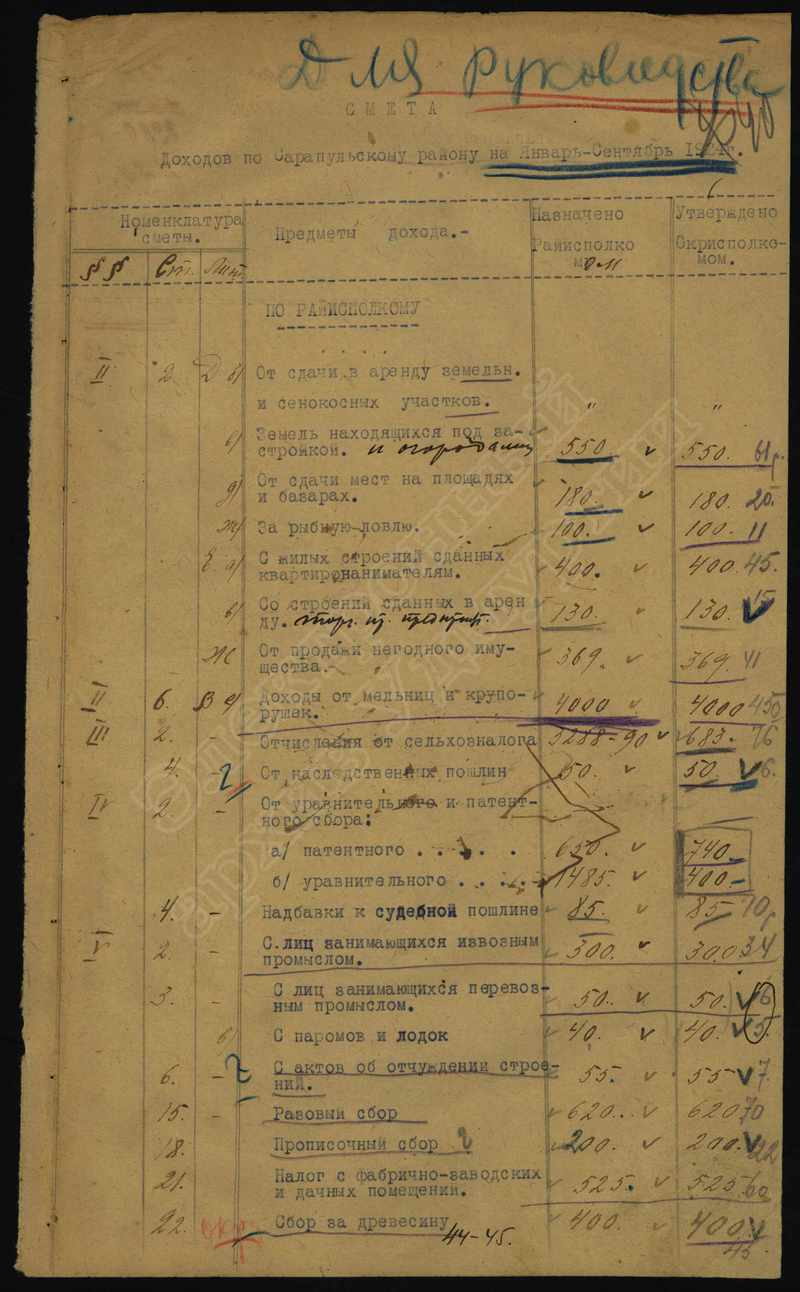 Для руководства
СМЕТА
Доходов по Сарапульскому району на Январь-Сентябрь 192 г.
Номенклатура сметы. Предметы дохода.- Назначено Райисполкомом Утверждено Окрисполкомом.
§§ Ст. Лит.
ПО РАЙИСПОЛКОМУ
II 2. Д б/ От сдачи в аренду земельн.
и сенокосных участков. " "
в/ Земель находящихся под за-
стройкой. и огородами 550 550. 61 р.
д/ От сдачи мест на площадях
и базарах. 180. 180. 20.
ж/ За рыбную ловлю. 100. 100. 11
Е а/ С жилых строений сданных
квартиронанимателям. 400. 400. 45.
в/ Со строений сданных в арен
ду. торг. пр. предприят. 130. 130. 15
Ж От продажи негодного иму-
щества.- 369. 369. 41
II 6. В а/ Доходы от мельниц и крупо-
рушек. 4000 4000 450
III 2. - Отчисления от сельхозналога 3288-90 683.- 76
4. - От наследственных пошлин 50. 50. 6.
IV 2. - От уравнительного и патент-
ного сбора:
а/ патентного . . . . . 650. 740.-
б/ уравнительного . . . . - 1485. 400-
4. - Надбавки к судебной пошлине 85. 85- 10 р
V 2. - С лиц занимающихся извозным
промыслом. 300. 300 34
3. - С лиц занимающихся перевоз-
ным промыслом. 50. 50. 6
б/ С паромов и лодок 40. 40. 5.
6. - С актов об отчуждении строе-
ний. 55. 55- 7.
15. - Разовый сбор 620. 620 70
18. Прописочный сбор 200. 200. 22
21. Налог с фабрично-заводских
и дачных помещений. 525. 525 60
22. окр. Сбор за древесину 44-45. 400. 400. 45.